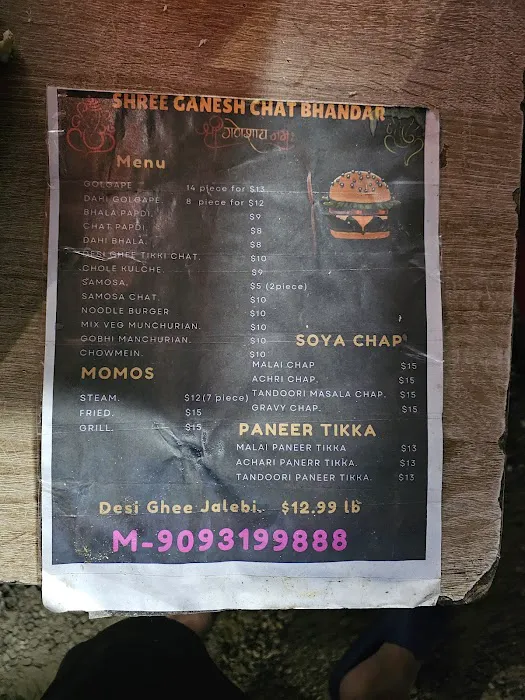 SHREE GANESH CHAT BHANDAR
श्री गणेशाय नमः
Menu
GOLGAPE 14 piece for $13
DAHI GOLGAPE 8 piece for $12
BHALA PAPDI. $9
CHAT PAPDI $8
DAHI BHALA. $8
DESI GHEE TIKKI CHAT. $10
CHOLE KULCHE $9
SAMOSA. $5 (2piece)
SAMOSA CHAT. $10
NOODLE BURGER $10
MIX VEG MUNCHURIAN. $10
GOBHI MANCHURIAN. $10
CHOWMEIN. $10
MOMOS
STEAM. $12(7 piece)
FRIED. $15
GRILL. $15
SOYA CHAP
MALAI CHAP $15
ACHRI CHAP. $15
TANDOORI MASALA CHAP. $15
GRAVY CHAP. $15
PANEER TIKKA
MALAI PANEER TIKKA $13
ACHARI PANERR TIKKA. $13
TANDOORI PANEER TIKKA. $13
Desi Ghee Jalebi. $12.99 lb
M-9093199888